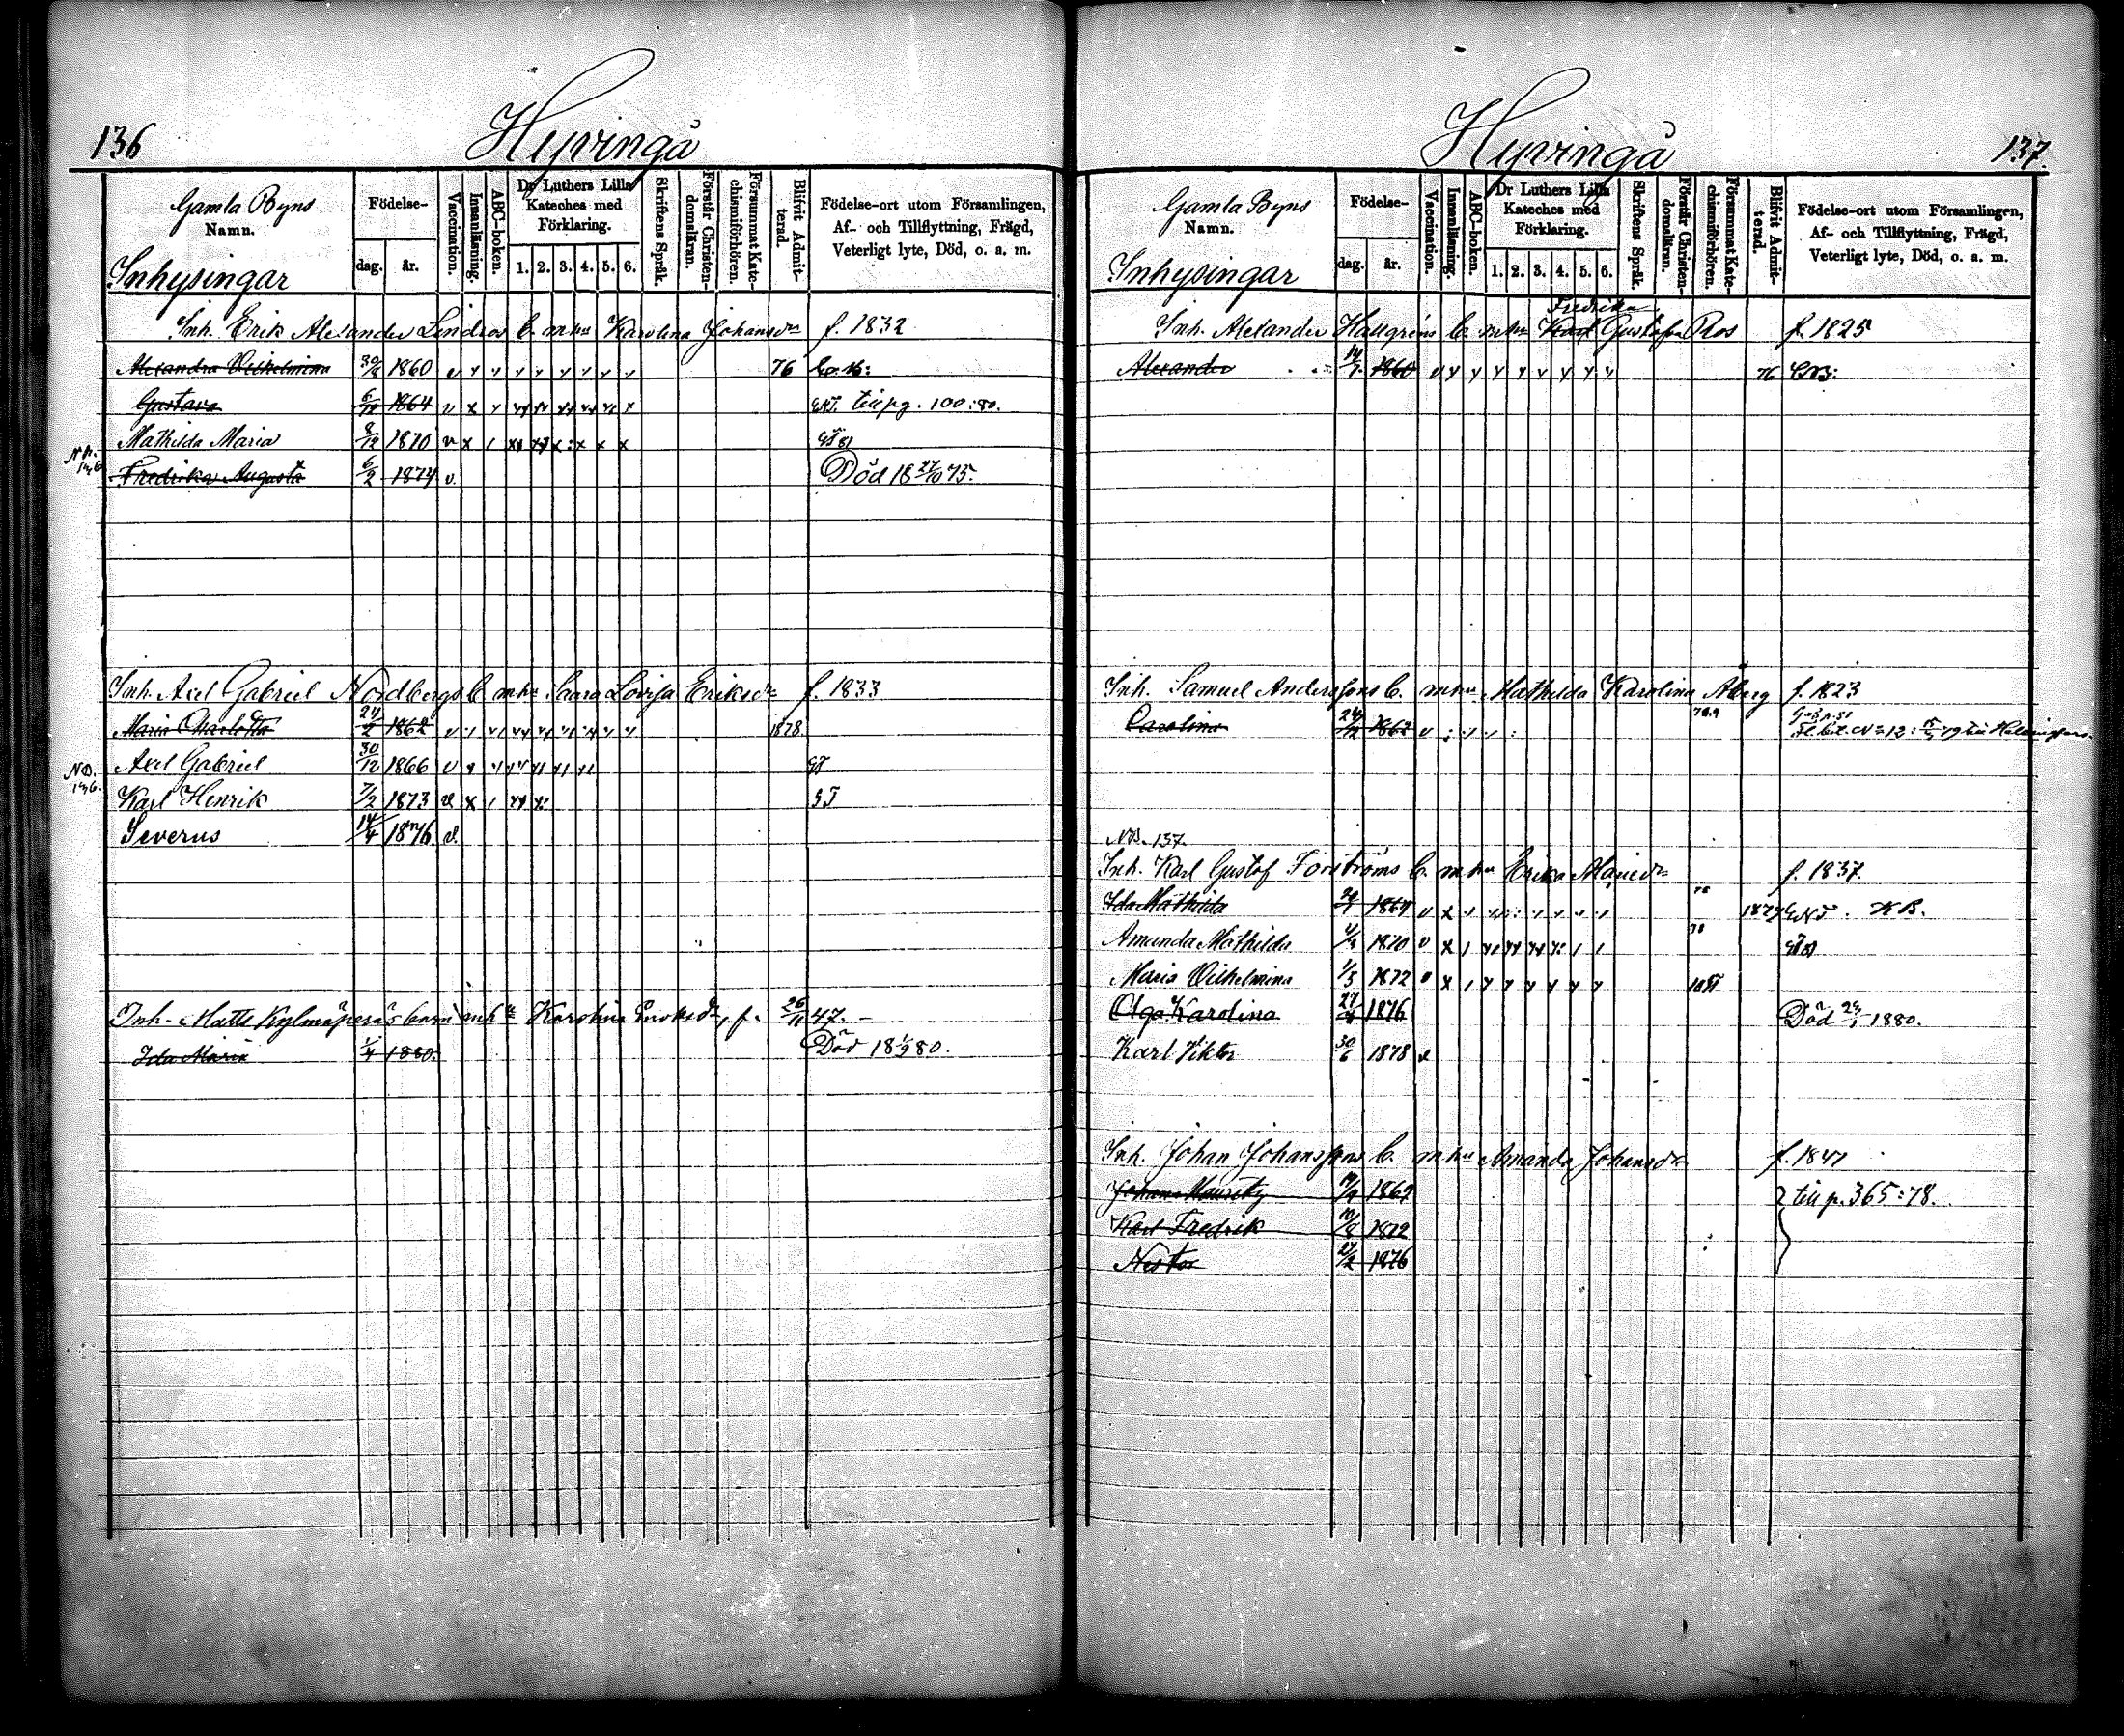 136
Hyvingå
Gamla Byns
Namn.
Inhysingar
Födelse-
dag.
år.
Vaccination.
Innanläsning.
ABC-boken.
Dr Luthers Lilla
Kateches med
Förklaring.
1. 2. 3. 4. 5. 6.
Skriftens Språk.
Förstår Christen-
domsläran.
Försummat Kate-
chismiförhören.
Blifvit Admit-
terad.
Födelse-ort utom Församlingen,
Af- och Tillflyttning, Frägd,
Veterligt lyte, Död, o. a. m.
Inh. Erik Alexander Lindros b. m hu Karolina Johansdr f. 1832
Alexandra Vilhelmina 30/6 1860 76
Gustava 1864 till pg. 100:80.
Mathilda Maria 8/12 1870
Fredrika Augusta 6/2 1874 v. Död 18 27/10 75.
Inh. Axel Gabriel Nordbergs b m hu Saara Lovisa Eriksdr f. 1833
Maria Charlotta 24/2 1862 1878
Axel Gabriel 30/12 1866
Karl Henrik 7/2 1873
Severus 14/4 1876 v.
Inh. Matts Kylmäperäs barn m h Karolina f. 26/11 47.
Ida Maria 1/4 1880. Död 18 1/9 80.
Hyvingå
137.
Gamla Byns
Namn.
Inhysingar
Födelse-
dag.
år.
Vaccination.
Innanläsning.
ABC-boken.
Dr Luthers Lilla
Kateches med
Förklaring.
1. 2. 3. 4. 5. 6.
Skriftens Språk.
Förstår Christen-
domsläran.
Försummat Kate-
chismiförhören.
Blifvit Admit-
terad.
Födelse-ort utom Församlingen,
Af- och Tillflyttning, Frägd,
Veterligt lyte, Död, o. a. m.
Fredrika
Inh. Alexander Hallgrens b. m hu Gustafva Ros f. 1825
Alexander 14/7 1860 76
Inh. Samuel Anderssons b. m hu Mathilda Karolina Åberg f. 1823
Carolina 1862 till Helsingfors
NB. 137.
Inh. Karl Gustaf Forströms b. m hu Erika f. 1837
Ida Mathilda
Amanda Mathilda 1870 78
Maria Vilhelmina 1/5 1872
Olga Karolina 1876 Död 1880.
Karl Viktor 30/6 1878
Inh. Johan Johanssons b. m hu Amanda Johansdr
Johan Mauritz 1869 till p. 365:78.
Karl Fredrik 10/8 1872
Nestor 1876